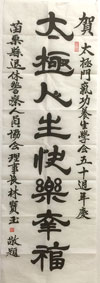 賀 太極門氣功養生學會五十週年慶
太極人生快樂幸福
苗栗縣退休警察人員協會理事長林賢玉 敬題